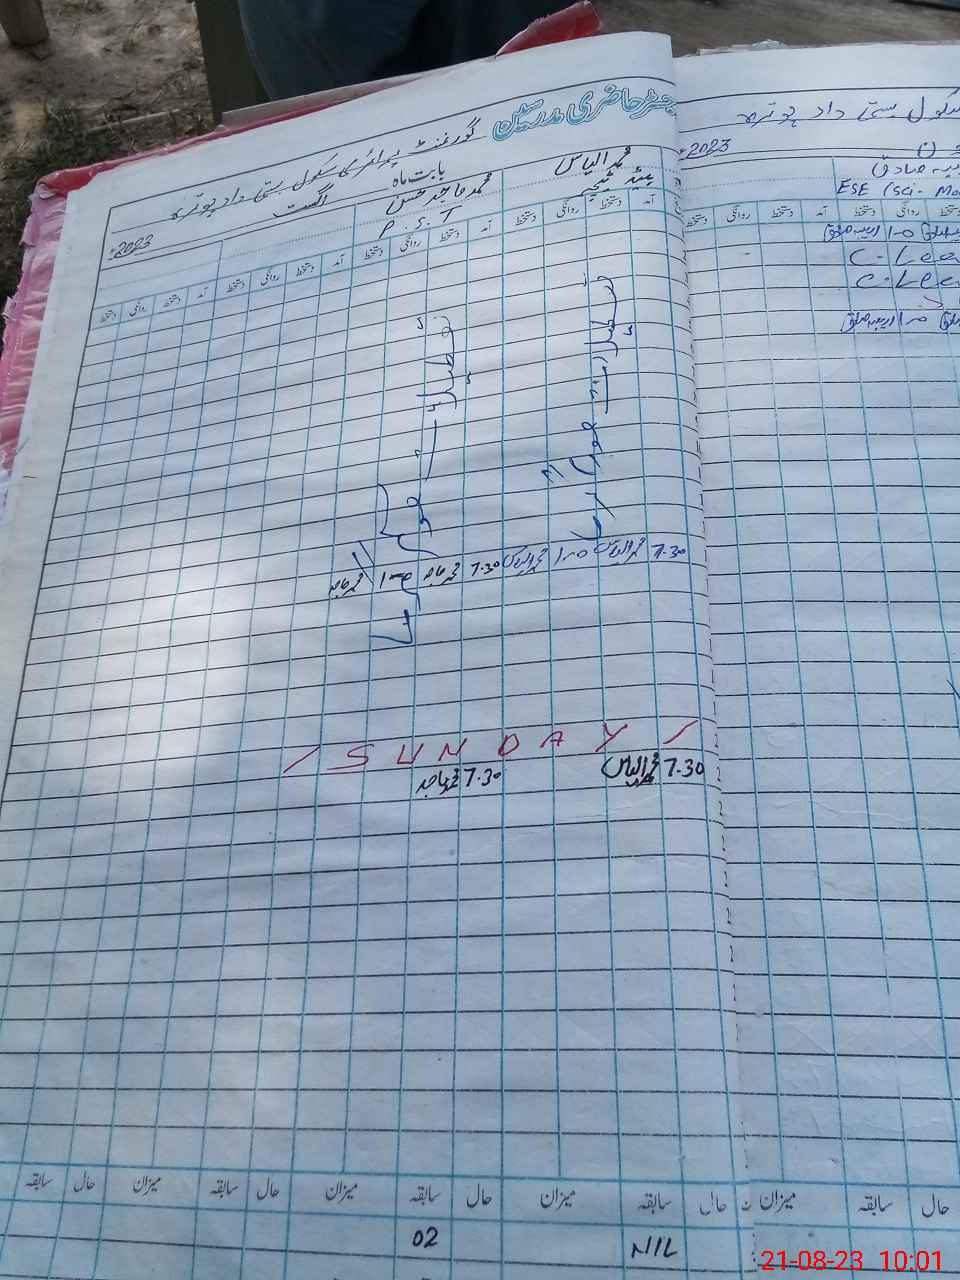 رجسٹر حاضری مدرسین
گورنمنٹ پرائمری سکول بستی داد پوترہ
سکول بستی داد پوترہ
بابت ماہ اگست 2023ء
2023ء
محمد الیاس
ہیڈ ٹیچر
محمد ماجد حسن
P.S.T
صادق
ESE (Sci-Ma
آمد دستخط روانگی دستخط آمد دستخط روانگی دستخط آمد دستخط روانگی دستخط آمد دستخط روانگی دستخط
C-Lea
C-Lea
تعطیلات موسم گرما
7.30 محمد الیاس 1-00 محمد الیاس 7.30 محمد ماجد 1-00 محمد ماجد
/ SUNDAY /
7.30 محمد الیاس 7.30 محمد ماجد
حال سابقہ میزان حال سابقہ میزان حال سابقہ میزان حال سابقہ
NIL 02
21-08-23 10:01